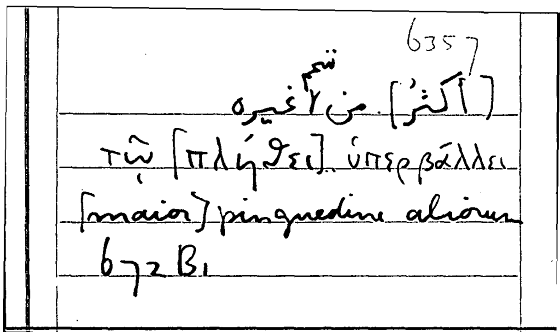 6357
شحم
[أكثرُ] من غيره
τῷ [πλήθει] ὑπερβάλλει
[maior] pinguedine aliorum
672 B1